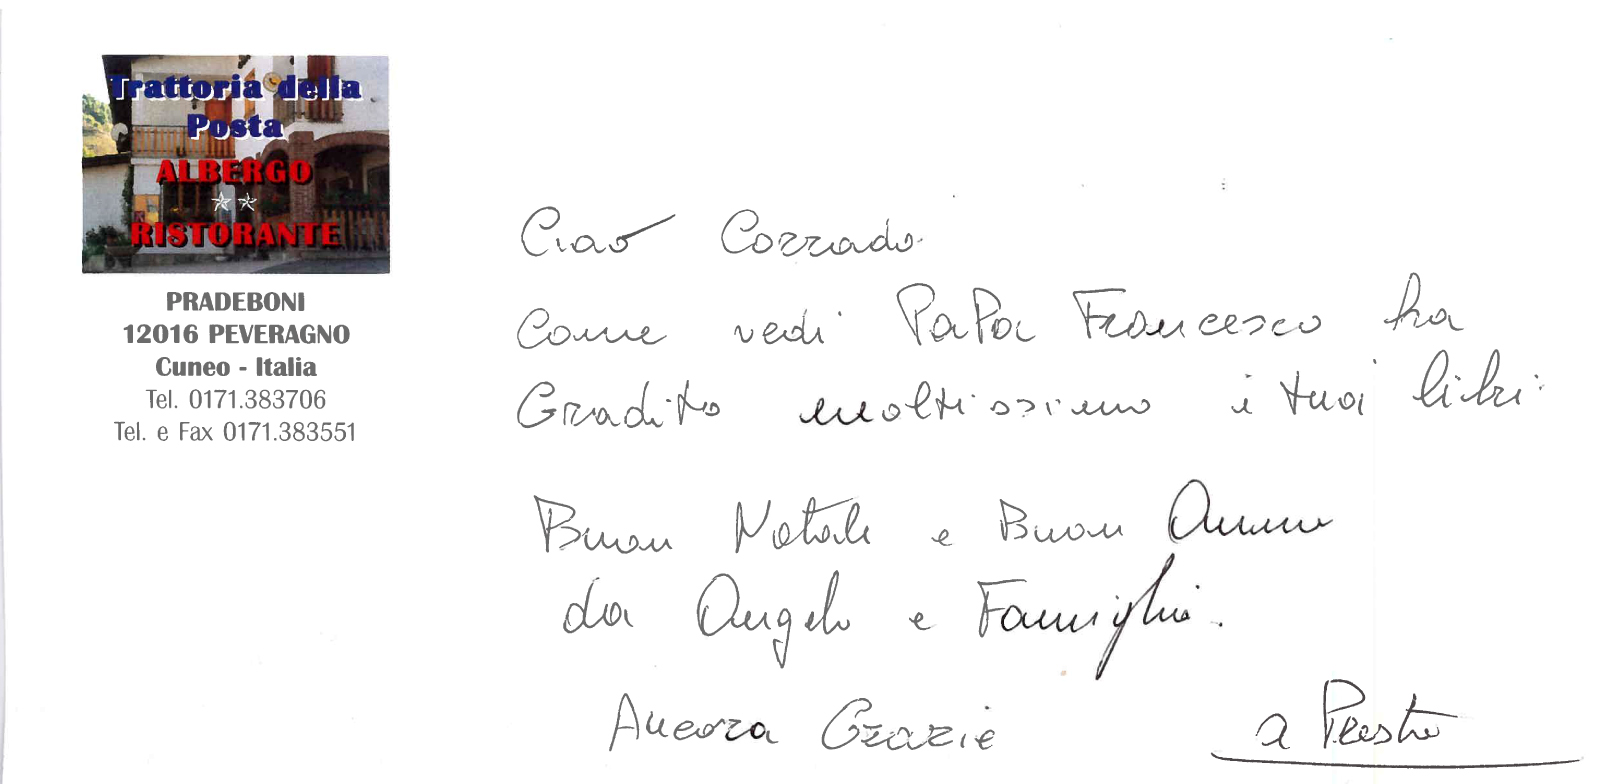 Trattoria della
Posta
ALBERGO
RISTORANTE
PRADEBONI
12016 PEVERAGNO
Cuneo - Italia
Tel. 0171.383706
Tel. e Fax 0171.383551
Ciao Corrado
Come vedi PaPa Francesco ha
Gradito moltissimo i tuoi libri
Buon Natale e Buon Anno
da Angelo e Famiglia.
Ancora Grazie a Presto